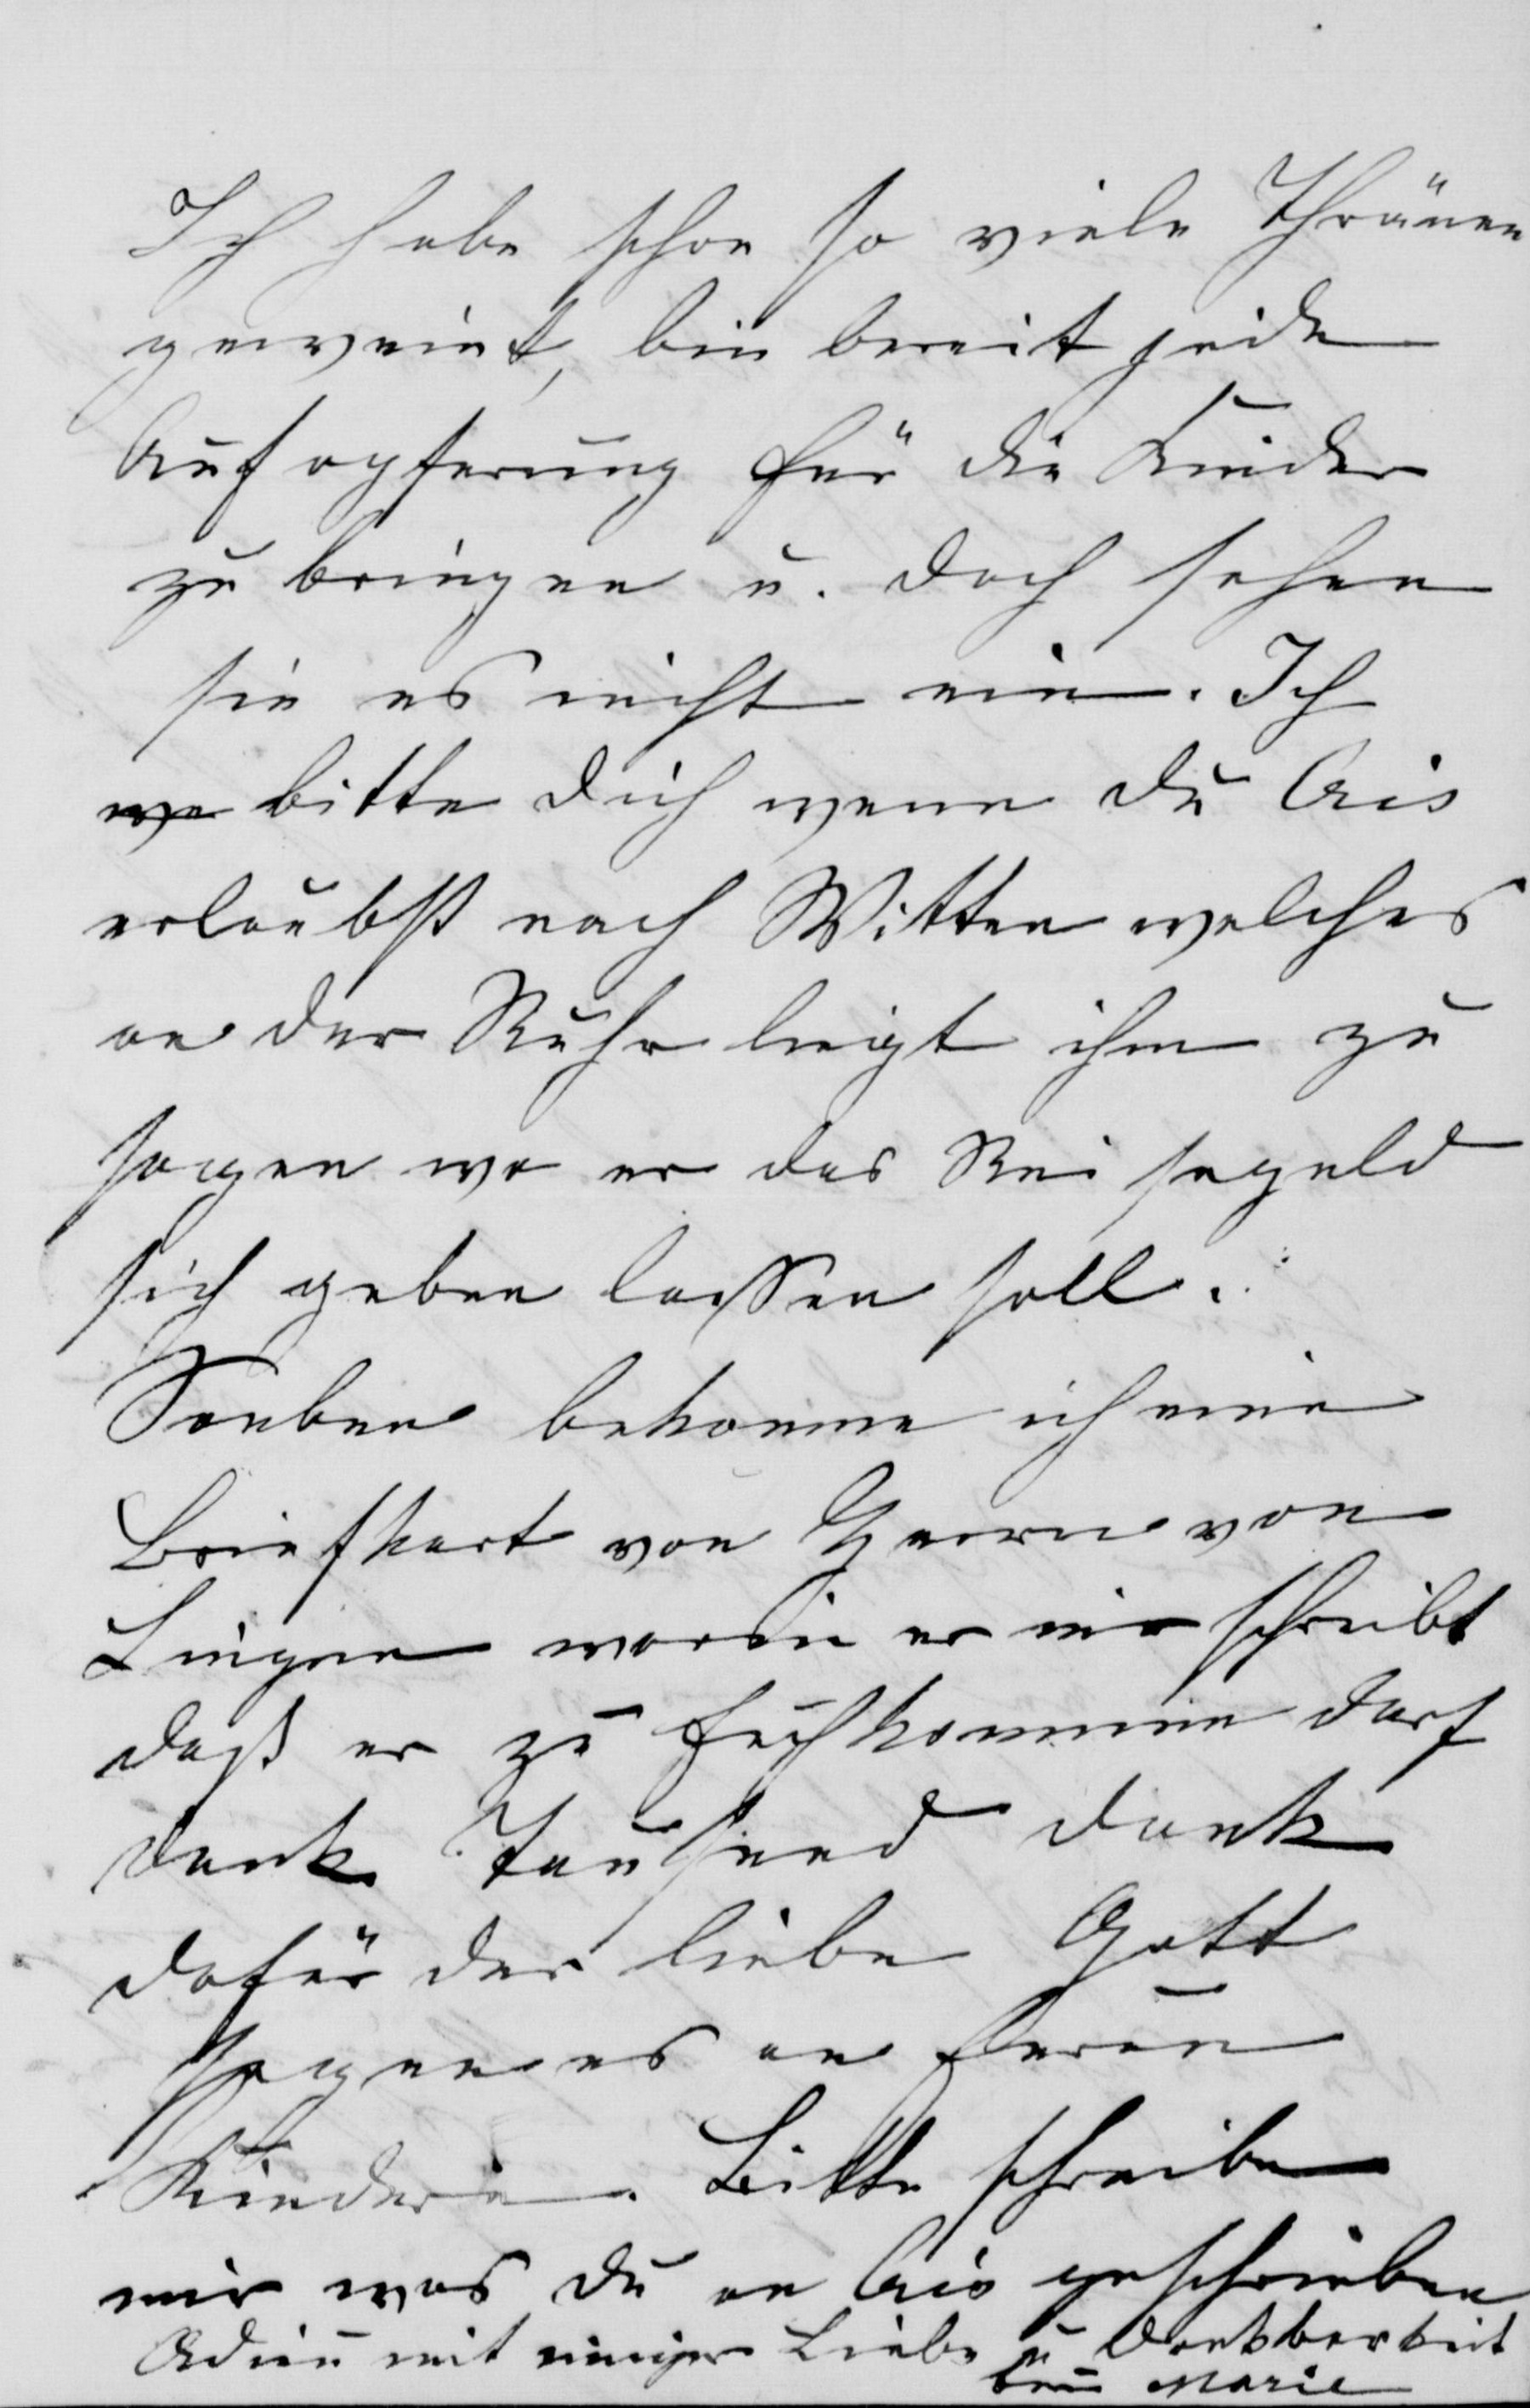 Ich habe schon so viele Thränen
geweint, bin bereit jede
Aufopferung für die Kinder
zu bringen u. doch sehen
sie es nicht ein. Ich
we bitte dich wenn du Ais
erlaubst nach Witten welches
an der Ruhr liegt ihm zu
sagen wo er das Reisegeld
sich geben lassen soll.
Soeben bekomme ich eine
Briefkart von Herrn von
Lingen worin er mir schreibt
daß er zu Euch kommen darf
dank Tausend dank
dafür der liebe Gott
segne es an Euren
Kindern. Bitte schreibe
mir was du an Ais geschrieben
Adieu mit inniger Liebe u Dankbarkeit
Marie